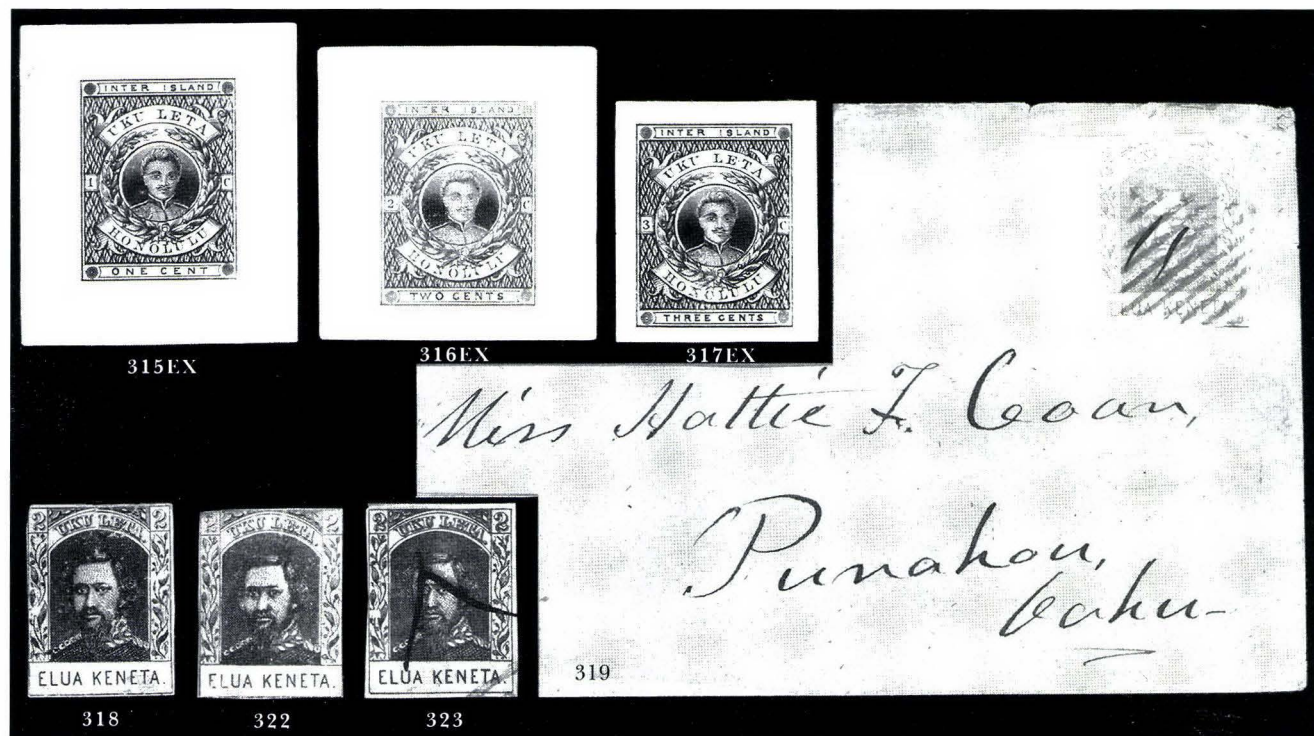 INTER ISLAND
UKU LETA
1 C
HONOLULU
ONE CENT
315EX
INTER ISLAND
UKU LETA
2 C
HONOLULU
TWO CENTS
316EX
INTER ISLAND
UKU LETA
3 C
HONOLULU
THREE CENTS
317EX
Miss Hattie F. Coan,
Punahou,
Oahu
319
2 UKU LETA 2
ELUA KENETA.
318
2 UKU LETA 2
ELUA KENETA.
322
2 UKU LETA 2
ELUA KENETA.
323